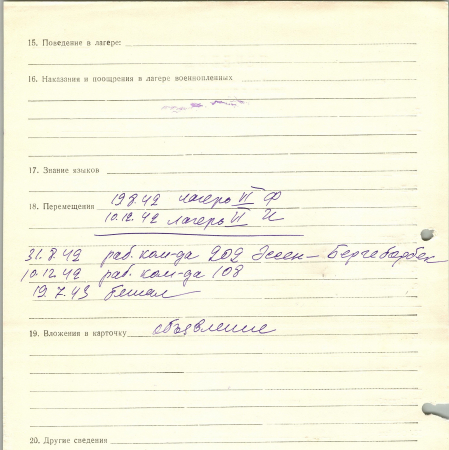 15. Поведение в лагере:
16. Наказания и поощрения в лагере военнопленных
17. Знание языков
19.8.42 лагерь VI Ф
18. Перемещения 10.12.42 лагерь VI И
31.8.42 раб. ком-да 202 Эссен-Бергеборбек
10.12.42 раб. ком-да 108
19.7.43 бежал
19. Вложения в карточку объявление
20. Другие сведения